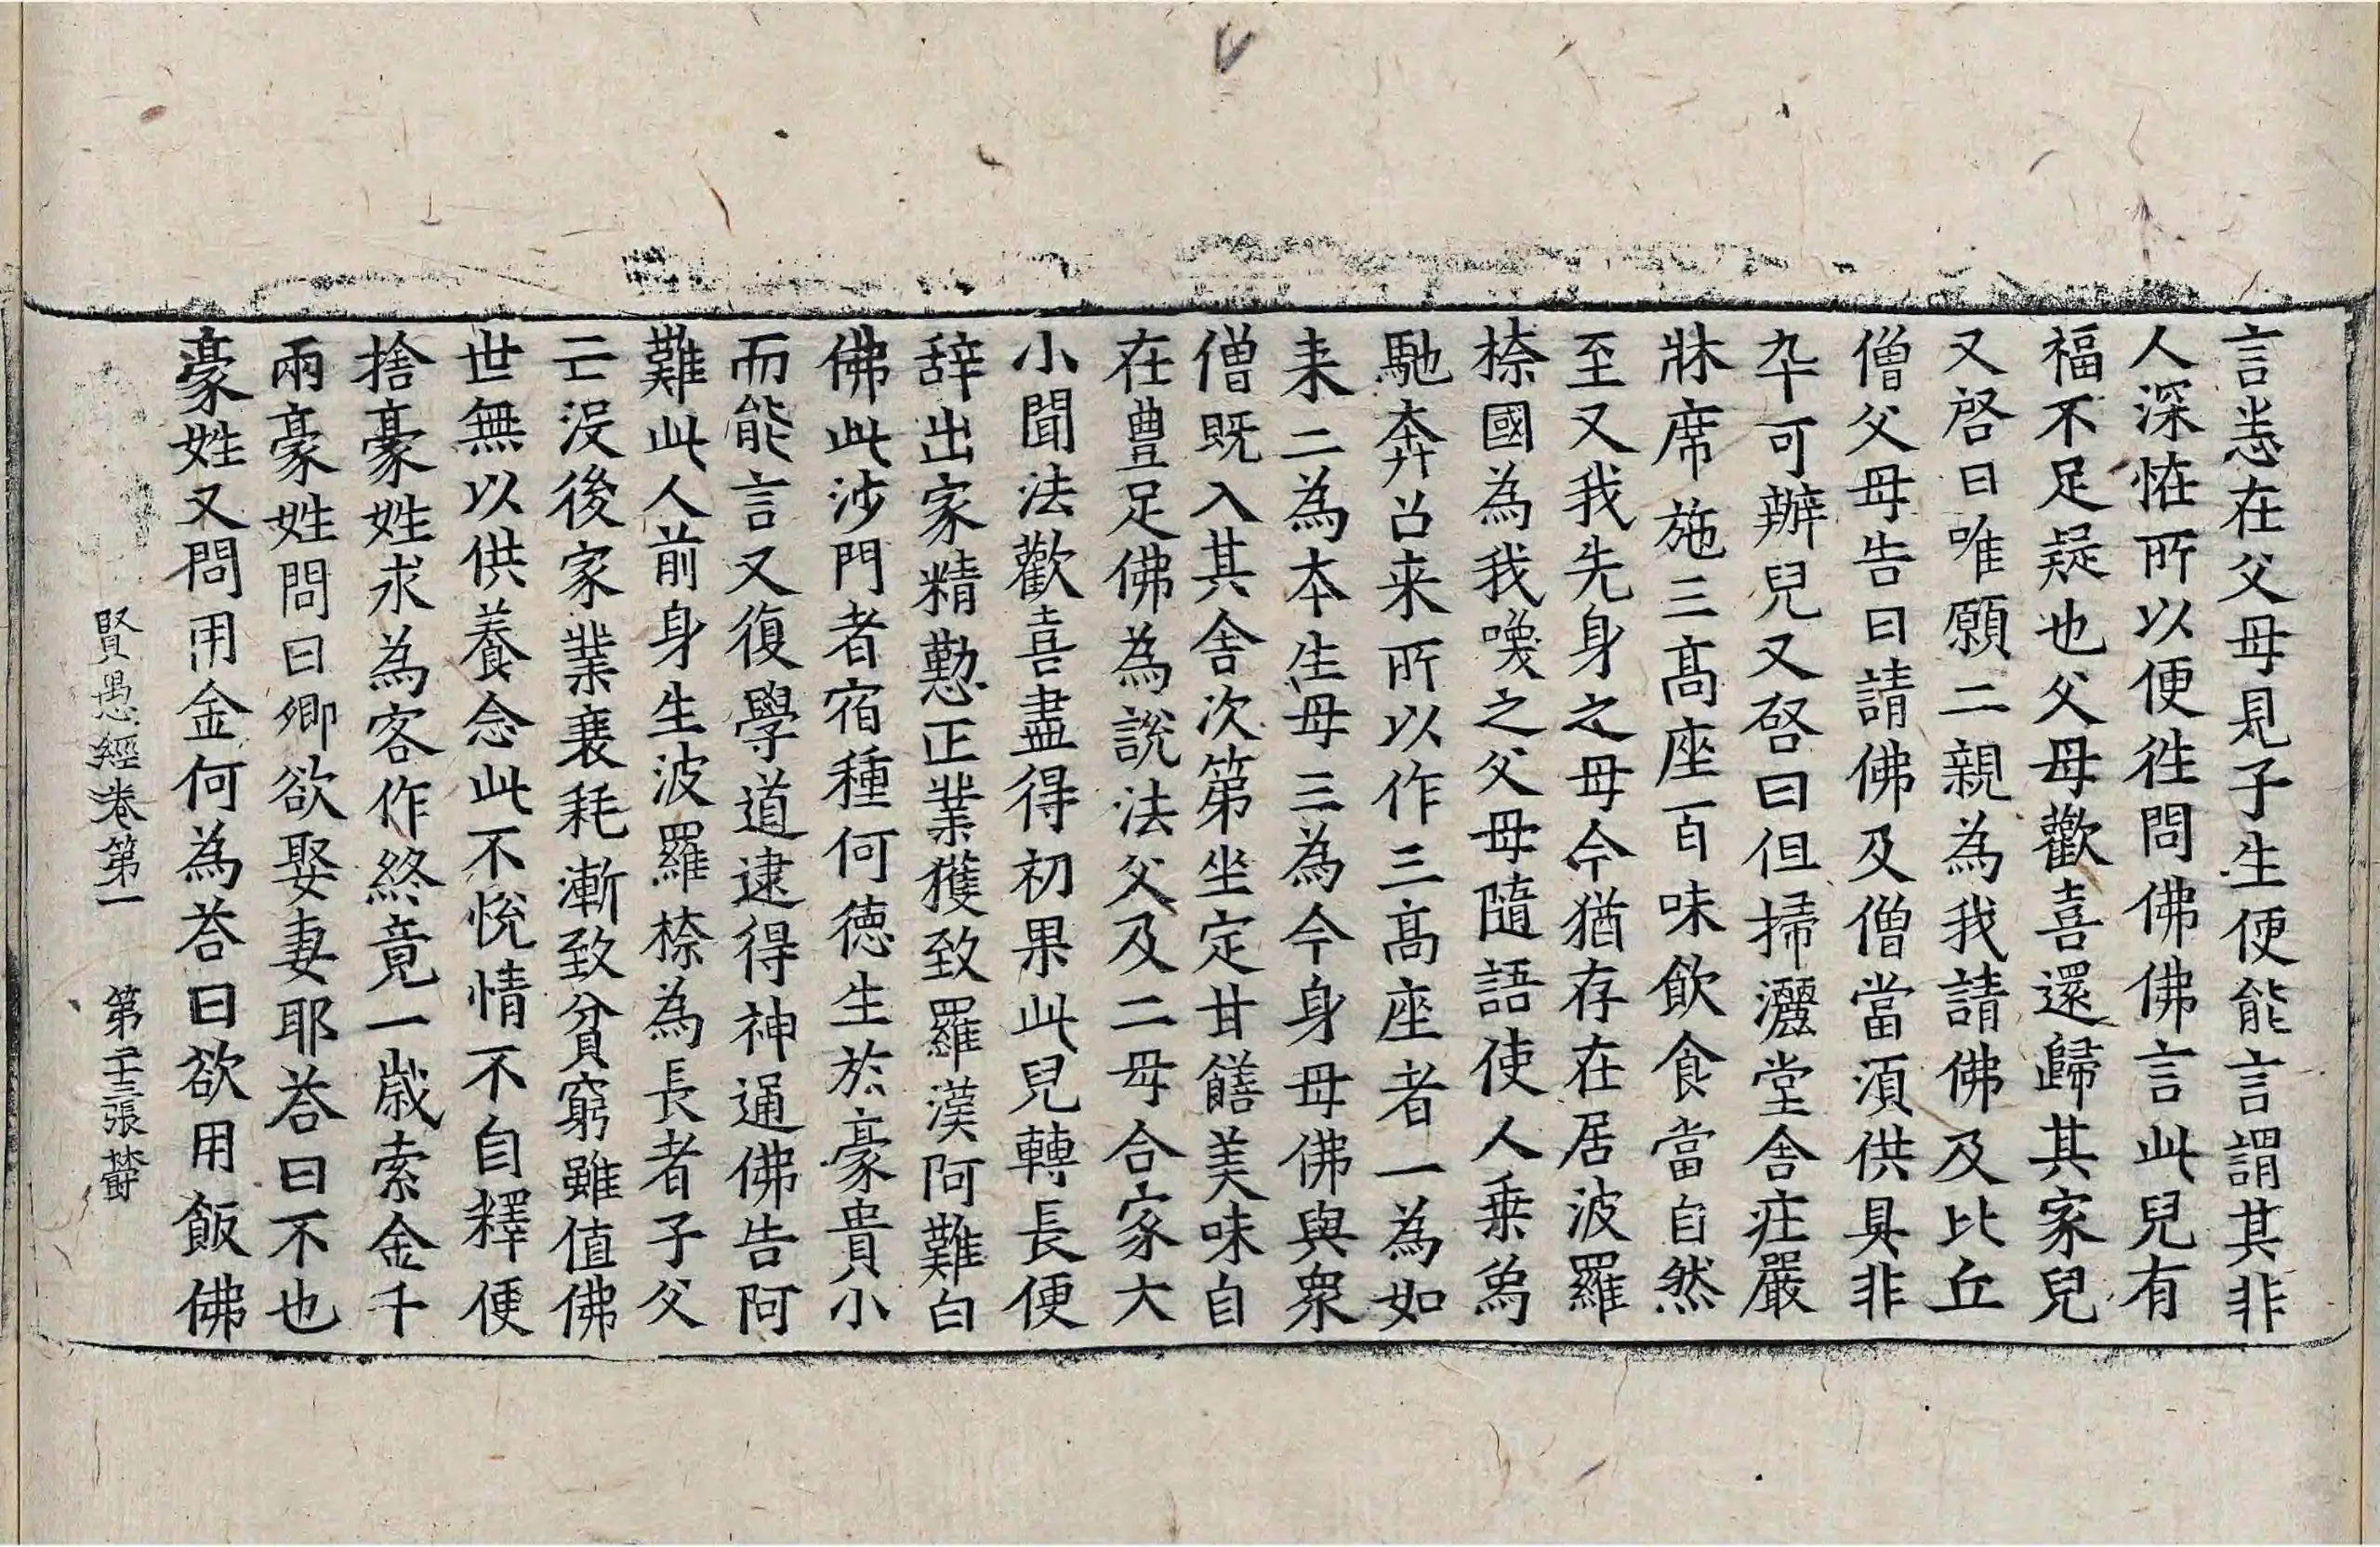 言恙在父母見子生便能言謂其非
人深恠所以便徃問佛佛言此兒有
福不足疑也父母歡喜還歸其家兒
又啓曰唯願二親為我請佛及比丘
僧父母告曰請佛及僧當湏供具非
卒可辦兒又啓曰但掃灑堂舍莊嚴
牀席施三髙座百味飲食當自然
至又我先身之母今猶存在居波羅
㮈國為我喚之父母隨語使人乗爲
馳奔召来所以作三髙座者一為如
来二為本生母三為今身母佛與衆
僧既入其舍次第坐定甘饍美味自
在豊足佛為說法父及二母合家大
小聞法歡喜盡得初果此兒轉長便
辞出家精懃正業獲致羅漢阿難白
佛此沙門者宿種何德生於豪貴小
而能言又復學道逮得神通佛告阿
難此人前身生波羅㮈為長者子父
亡沒後家業衰耗漸致貧窮雖值佛
世無以供養念此不悅情不自釋便
捨豪姓求為客作終竟一歲索金千
兩豪姓問曰卿欲娶妻耶荅曰不也
豪姓又問用金何為荅曰欲用飯佛
賢愚經卷第一 第二十三張 欝